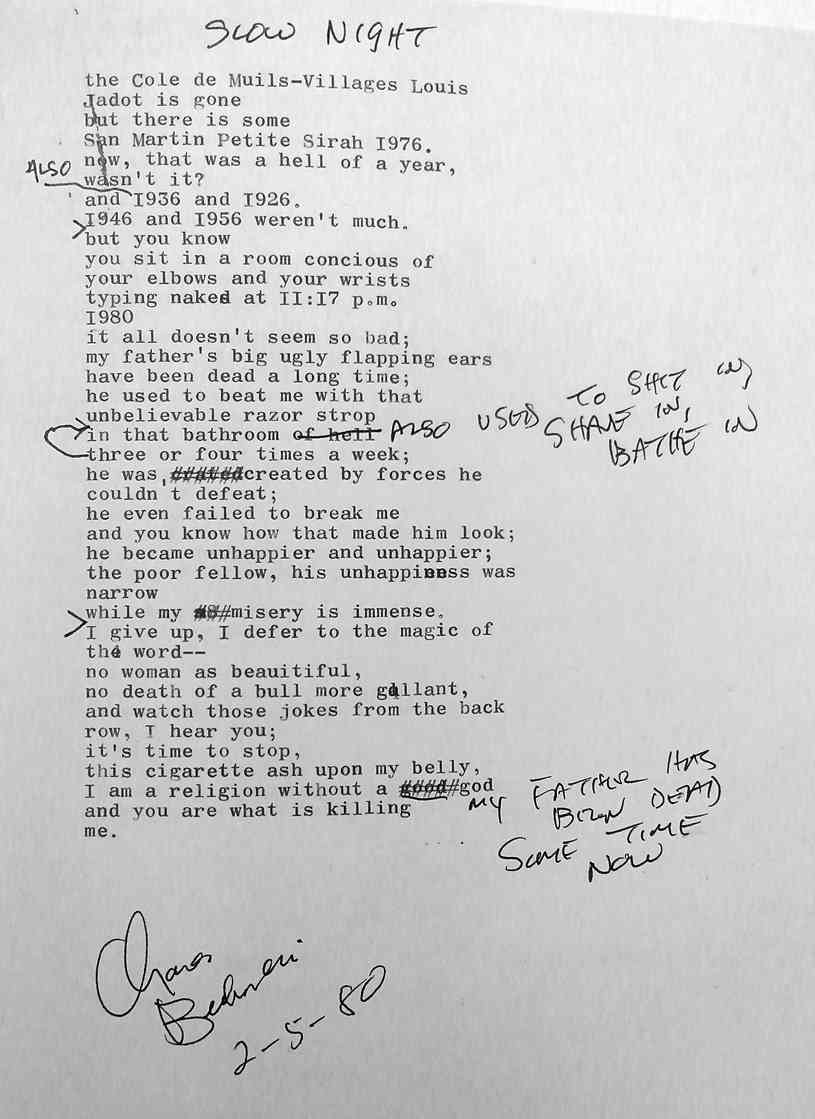 SLOW NIGHT
the Cole de Muils-Villages Louis
Jadot is gone
but there is some
San Martin Petite Sirah I976.
now, that was a hell of a year,
ALSO
wasn't it?
and I936 and I926.
I946 and I956 weren't much.
but you know
you sit in a room concious of
your elbows and your wrists
typing naked at II:I7 p.m.
I980
it all doesn't seem so bad;
my father's big ugly flapping ears
have been dead a long time;
he used to beat me with that
unbelievable razor strop
in that bathroom of hell ALSO USED TO SHIT IN,
SHAVE IN,
BATHE IN
three or four times a week;
he was, ######created by forces he
couldn t defeat;
he even failed to break me
and you know how that made him look;
he became unhappier and unhappier;
the poor fellow, his unhappiness was
narrow
while my ###misery is immense.
I give up, I defer to the magic of
the word--
no woman as beauitiful,
no death of a bull more gallant,
and watch those jokes from the back
row, I hear you;
it's time to stop,
this cigarette ash upon my belly,
I am a religion without a #####god
and you are what is killing
me.
MY FATHER HAS
BEEN DEAD
SOME TIME
NOW
Charles
Bukowski
2-5-80